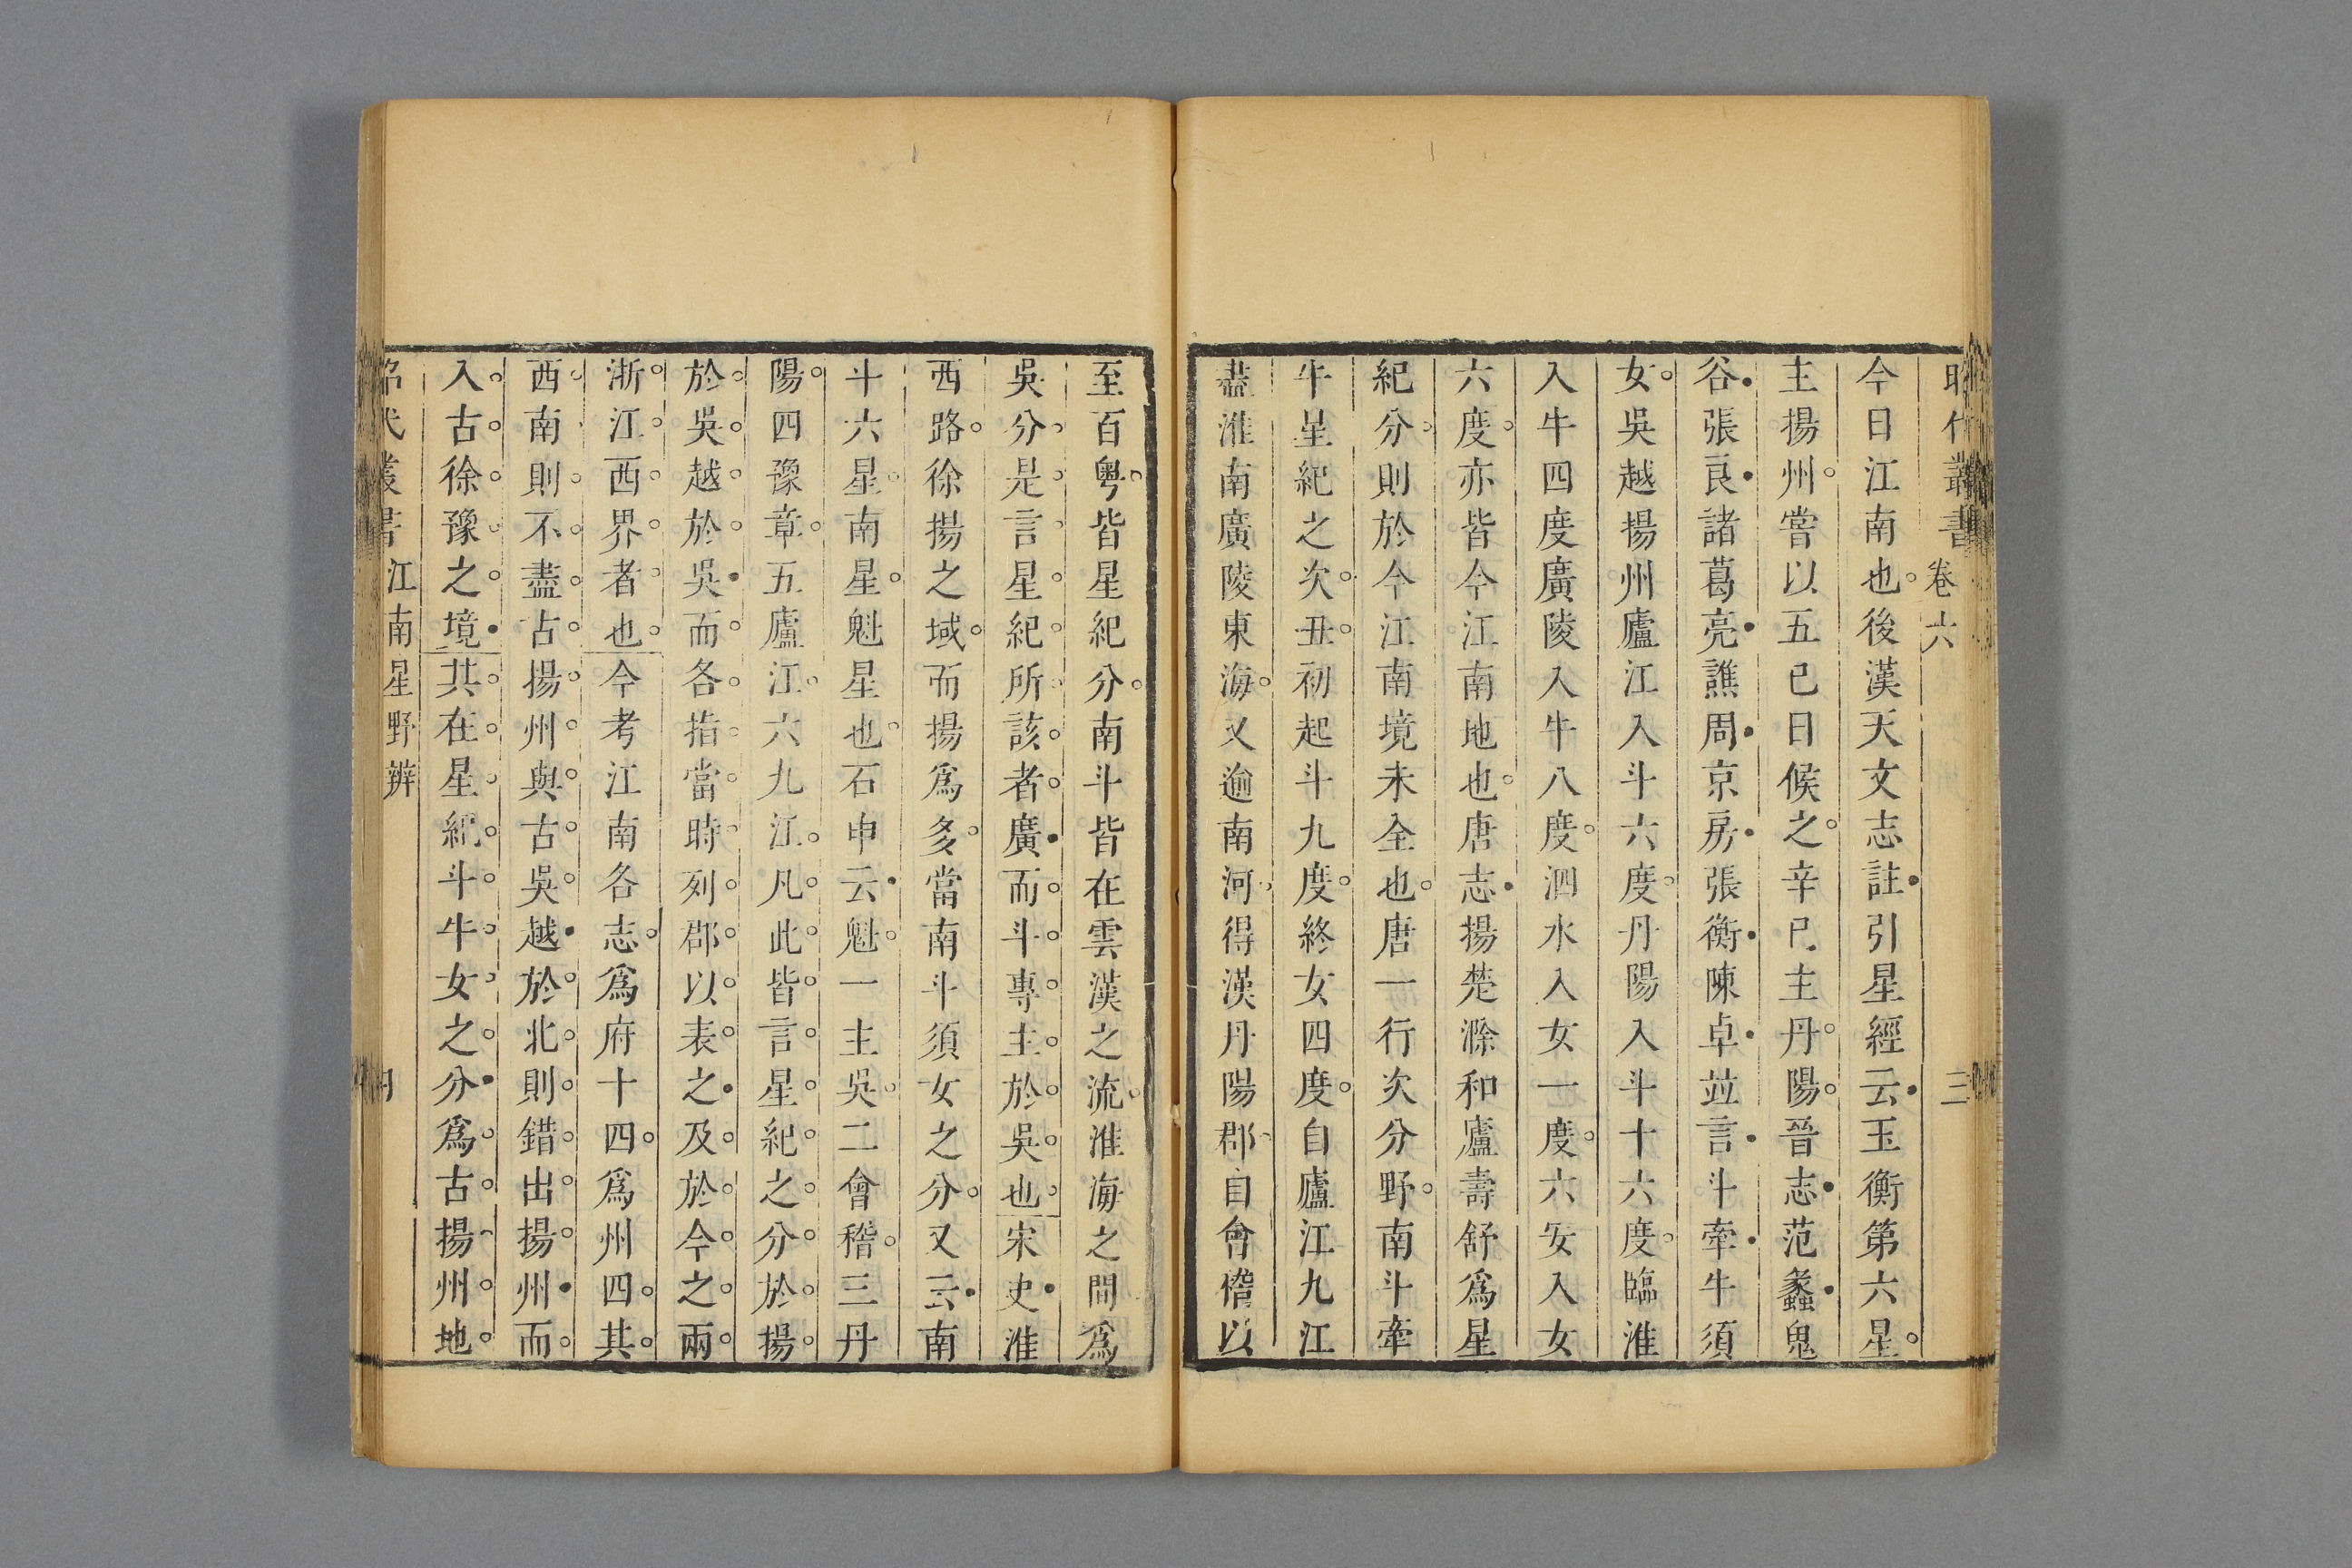 昭代叢書 卷六 三
今日江南也後漢天文志註引星經云玉衡第六星
主揚州嘗以五巳日候之辛巳主丹陽晉志范蠡鬼
谷張良諸葛亮譙周京房張衡陳卓竝言斗牽牛須
女吳越揚州廬江入斗六度丹陽入斗十六度臨淮
入牛四度廣陵入牛八度泗水入女一度六安入女
六度亦皆今江南地也唐志揚楚滁和廬壽舒爲星
紀分則於今江南境未全也唐一行次分野南斗牽
牛星紀之次丑初起斗九度終女四度自廬江九江
葢淮南廣陵東海又逾南河得漢丹陽郡自會稽以
至百粵皆星紀分南斗皆在雲漢之流淮海之間爲
吳分是言星紀所該者廣而斗專主於吳也宋史淮
西路徐揚之域而揚爲多當南斗須女之分又云南
斗六星南星魁星也石申云魁一主吳二會稽三丹
陽四豫章五廬江六九江凡此皆言星紀之分於揚
於吳越於吳而各指當時列郡以表之及於今之兩
浙江西界者也今考江南各志爲府十四爲州四其
西南則不盡占揚州與古吳越於北則錯出揚州而
入古徐豫之境共在星紀斗牛女之分爲古揚州地
昭代叢書 江南星野辨 四